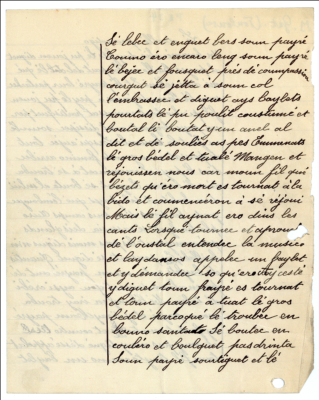 Sé lebec et enguet bers soun payré
Couno éro encaro leng soun payré
lé bejec et fousquet près de coumpassion
courgut sé jetta à soun col
l'embrassec et diguet ays baylets
pourtats lé pu poulit coustumé et
boutal lé boutal y un anel al
dit et dé souliés as pes
lé gros bédel et tualé Mangen et
réjouissen nous car moun fil qui
béjets qu'éro mort es tournat à la
bido et coumencèron à sé réjoui
Mais lé fil aynat ero dins les
cants Lorsque tournec et aprouchec
dé l'oustal entendec la musico
et lay dansos appelec un baylet
et y démandec so qu'ero cesté
y diguet toun payré es tournat
et toun payré à tuat lé gros
bédel parcoqué lé troubec en
bouno santado Sé boutec en
couléro et boulguet pas drinta
Soun payré sourtiguet et lé